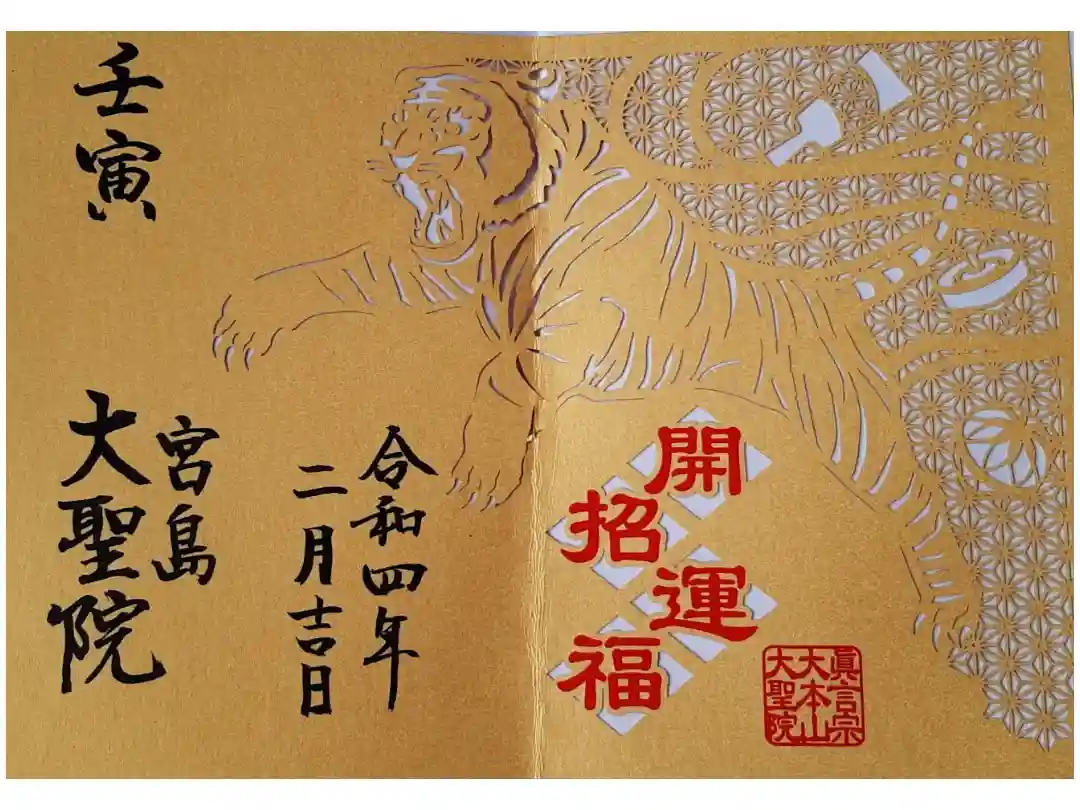 開運
招福
眞言宗
大本山
大聖院
令和四年
二月吉日
壬寅
宮島
大聖院